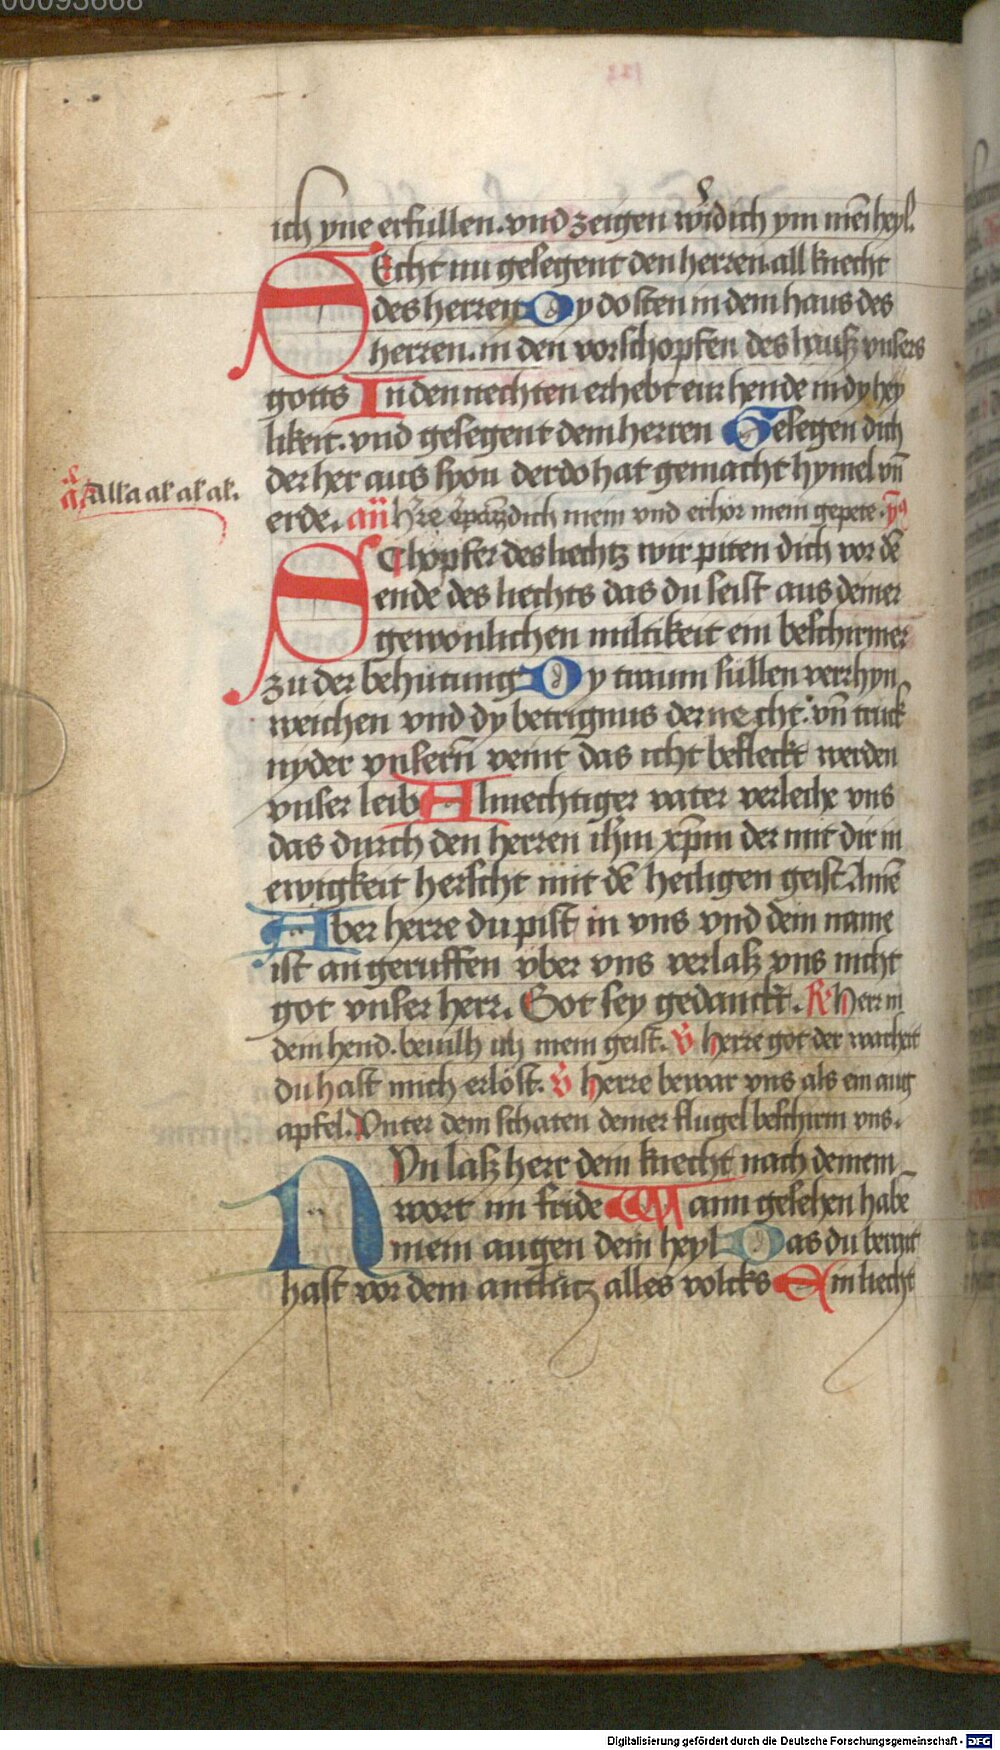 00093668
ich yne erfullen. vnd zeigen wirdich ym mein heyl.
SEcht nu gesegent den herren. all knecht
des herren Dy do sten in dem haus des
herren. in den vorschopfen des hauß vnsers
gotts In den nechten erhebt eur hende in dy hey
likeit. vnd gesegent dem herren Gesegen dich
der her aus syon der do hat gemacht hymel vnd
Alla al al al al.
erde. dich mein vnd erhor mein gepete.
SChopfer des liechtz wir piten dich vor dem
ende des liechts das du seist aus deiner
gewonlichen miltikeit ein beschirmer
zu der behutung Dy traum sullen verrhyn
weichen vnd dy betrignus der necht. vn truck
nyder vnsern veint das icht befleckt werden
vnser leib Almechtiger vater verleche vns
das durch den herren ihm xpm der mit dir in
ewigkeit herscht mit dem heiligen geist Amen
Aber herre du pist in vns vnd dein name
ist an geruffen vber vns verlaß vns nicht
got vnser herr. Got sey gedanckt. Herr in
dein hend. beuilh ich mein geist. herre got der warheit
du hast mich erlost. herre bewar vns als ein aug
apfel. Vnter dem schaten deiner flugel beschirm vns.
NVn laß herr dein knecht nach deinem
wort im fride Wann gesehen habe
mein augen dein heyl Das du bereit
hast vor dem antlutz alles volcks Ein liecht
Digitalisierung gefördert durch die Deutsche Forschungsgemeinschaft - DFG